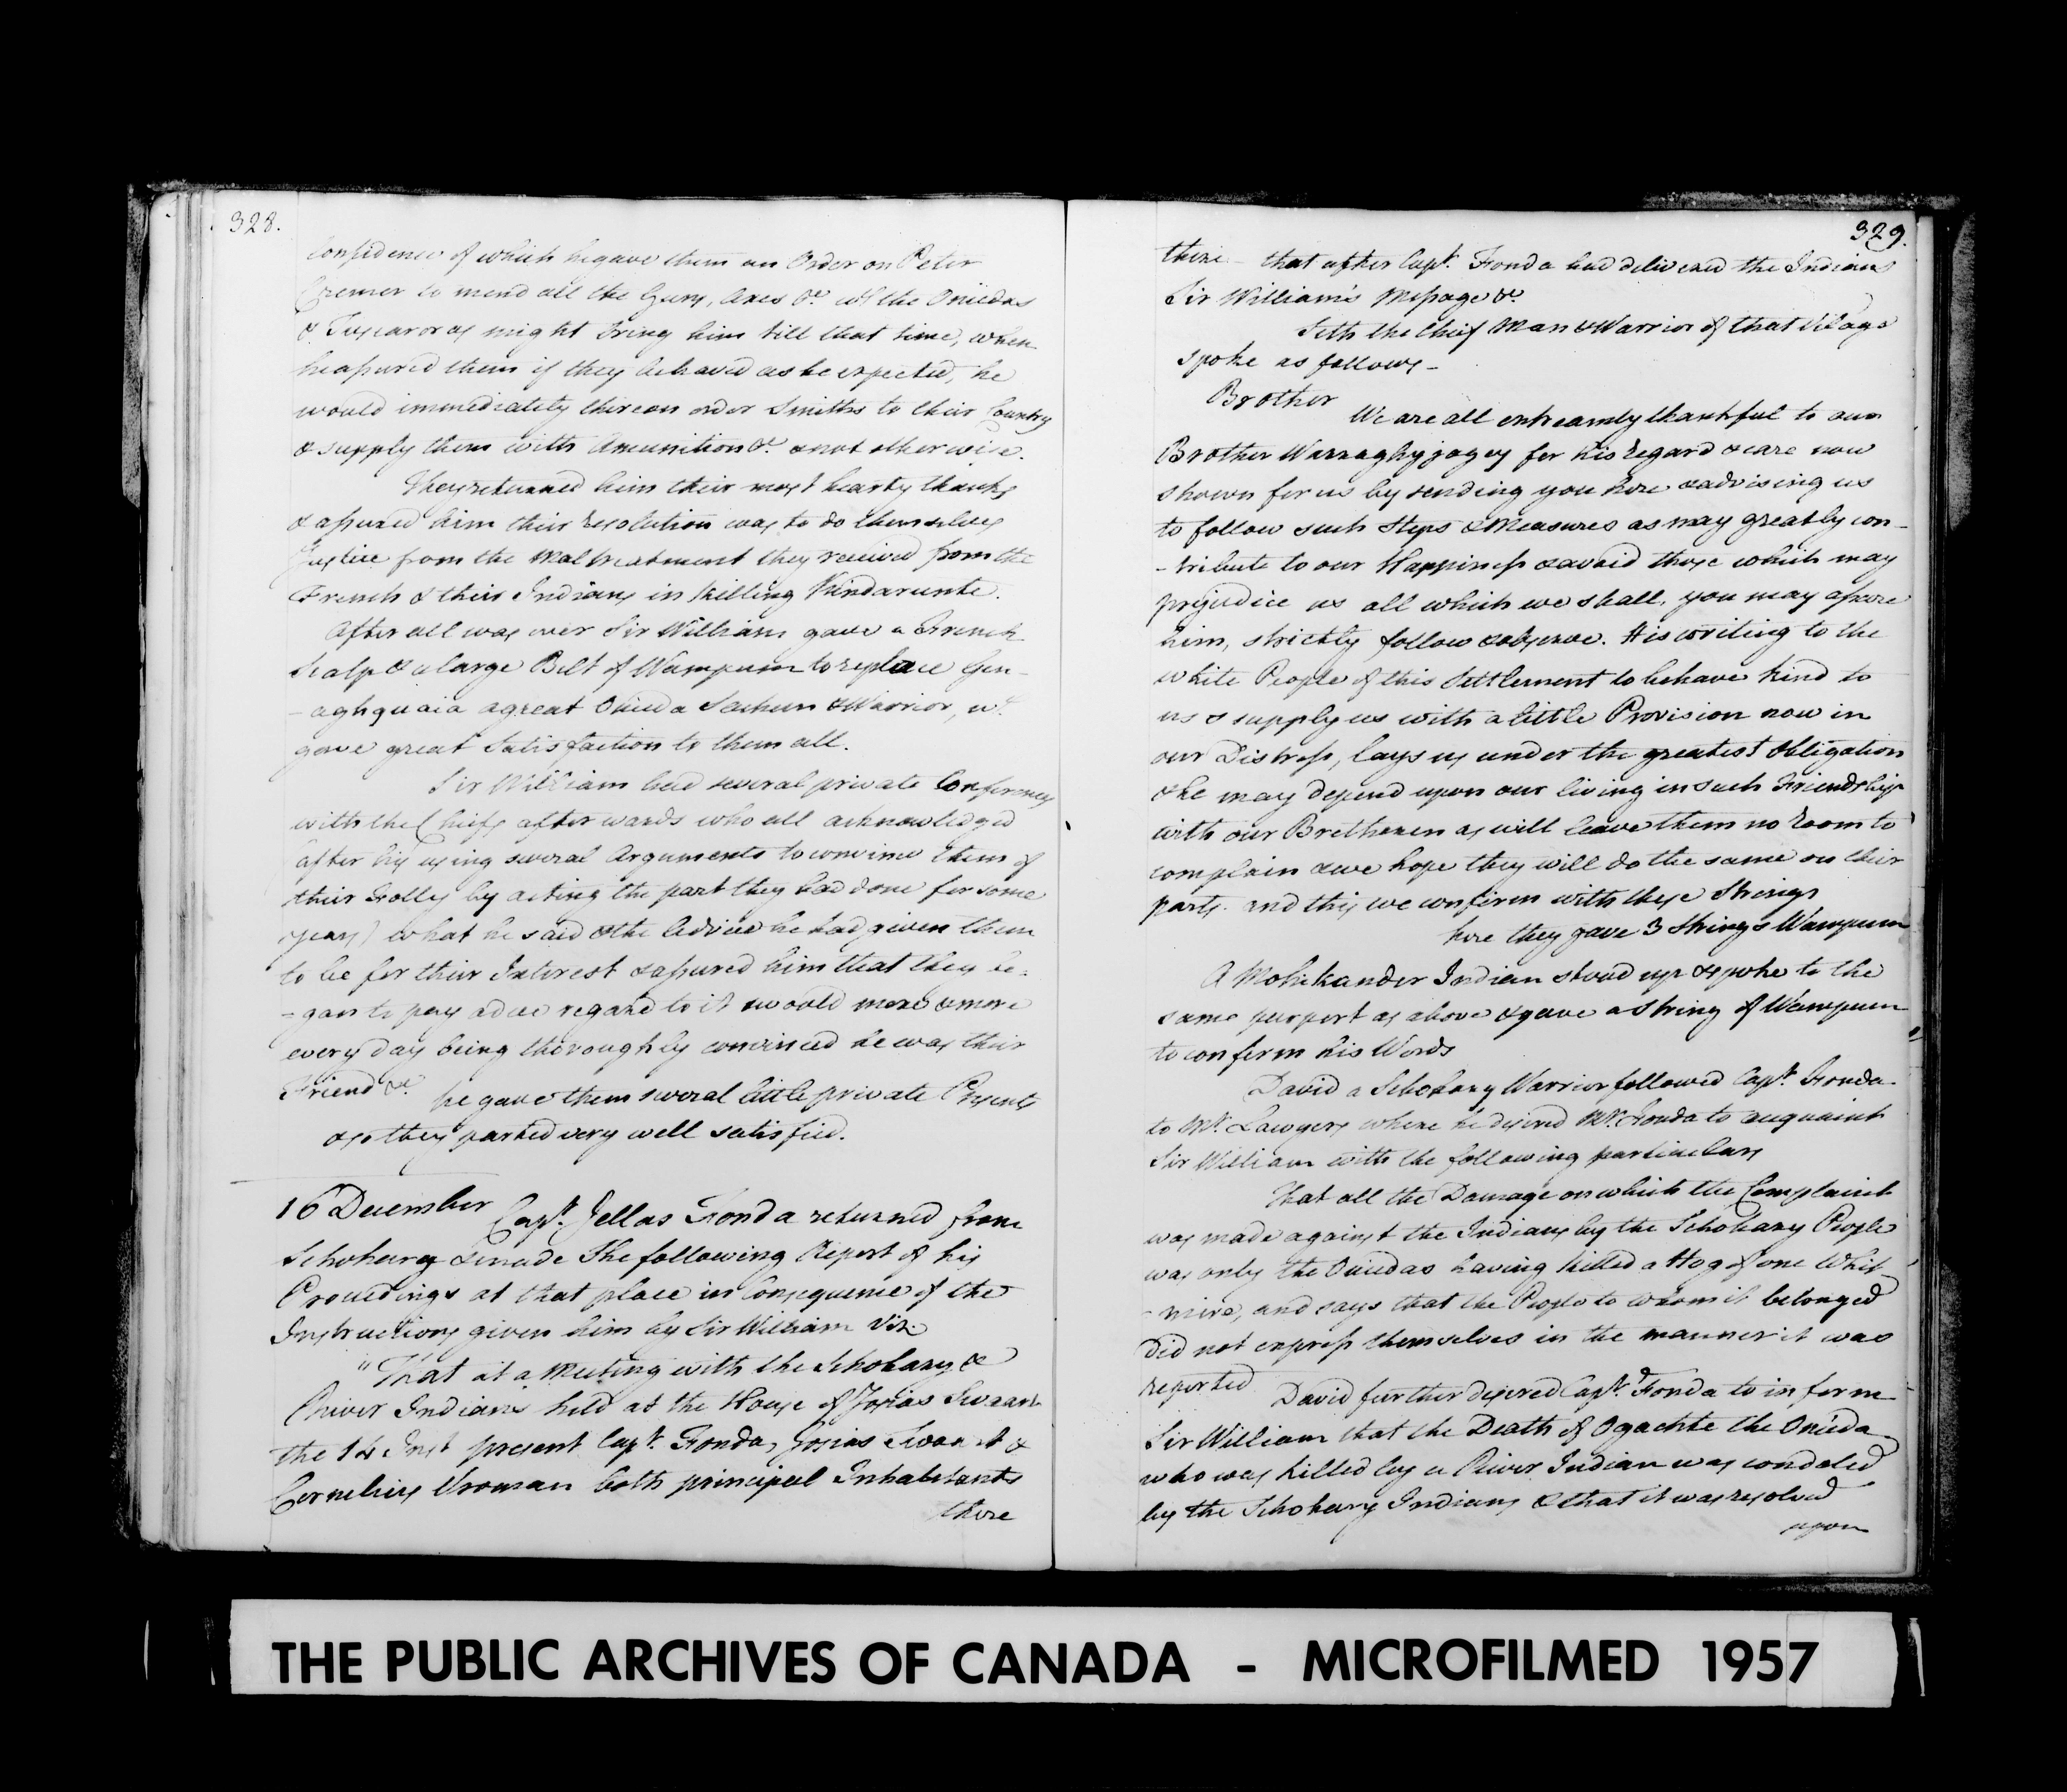 328.
Confidence of which he gave them an Order on Peter
Cremer to mend all the Guns, Axes &c. wh. the Oneidas
& Tuscaroras might bring him till that time, when
he assured them if they behaved as he expected, he
would immediately thereon order Smiths to their Country
& supply them with Amunition &c. & not otherwise.
They returned him their most hearty thanks
& assured him their resolution was to do themselves
Justice from the Maltreatment they received from the
French & their Indians in killing Kindarunte.
After all was over Sir William gave a French
Scalp & a large Belt of Wampum to replace Gen-
-aghquaia a great Oneida Sachem & Warrior, wh.
gave great Satisfaction to them all.
Sir William had several private Conferences
with the Chiefs afterwards who all acknowledged
(after his using several Arguments to convince them of
their Folly by acting the part they had done for some
years) what he said & the Advice he had given them
to be for their Interest & assured him that they be-
-gan to pay a due regard to it & would more & more
every day being thoroughly convinced he was their
Friend &c. he gave them several little private Presents
& so they parted very well satisfied.
16 December Capt. Jellas Fonda returned from
Schohary & made The following Report of his
Proceedings at that place in Consequence of the
Instructions given him by Sir William Viz.
"That at a Meeting with the Schohary &
River Indians held at the House of Josias Swaart
the 14 Inst present Capt. Fonda, Josias Swaart &
Cornelius Vroman both principal Inhabitants
there
329.
there - that after Capt. Fonda had delivered the Indians
Sir William's Message &c.
Seth the Chief Man & Warrior of that Village
spoke as follows -
Brother
We are all extreamly thankful to our
Brother Warraghyjagey for his regard & care now
shown for us by sending you here & advising us
to follow such Steps & Measures as may greatly con-
-tribute to our Happiness & avoid those which may
prejudice us all which we shall, you may assure
him, strictly follow & observe. His writing to the
white People of this Settlement to behave kind to
us & supply us with a little Provision now in
our Distress, lays us under the greatest Obligation
& he may depend upon our living in such Friendship
with our Bretheren as will leave them no room to
complain & we hope they will do the same on their
parts. and this we confirm with these Strings
here they gave 3 Strings Wampum
A Mohikander Indian stood up & spoke to the
same purport as above & gave a String of Wampum
to confirm his Words
David a Schohary Warrior followed Capt. Fonda
to Mr. Lawyers where he desired Mr. Fonda to acquaint
Sir William with the following particulars
That all the Damage on which the Complaint
was made against the Indians by the Schohary People
was only the Oneidas having killed a Hog of one Whit
-mire, and says that the People to whom it belonged
did not express themselves in the manner it was
reported David further desired Capt. Fonda to inform
Sir William that the Death of Ogachte the Oneida
who was killed by a River Indian was condoled
by the Schohary Indians & that it was resolved
upon
THE PUBLIC ARCHIVES OF CANADA - MICROFILMED 1957